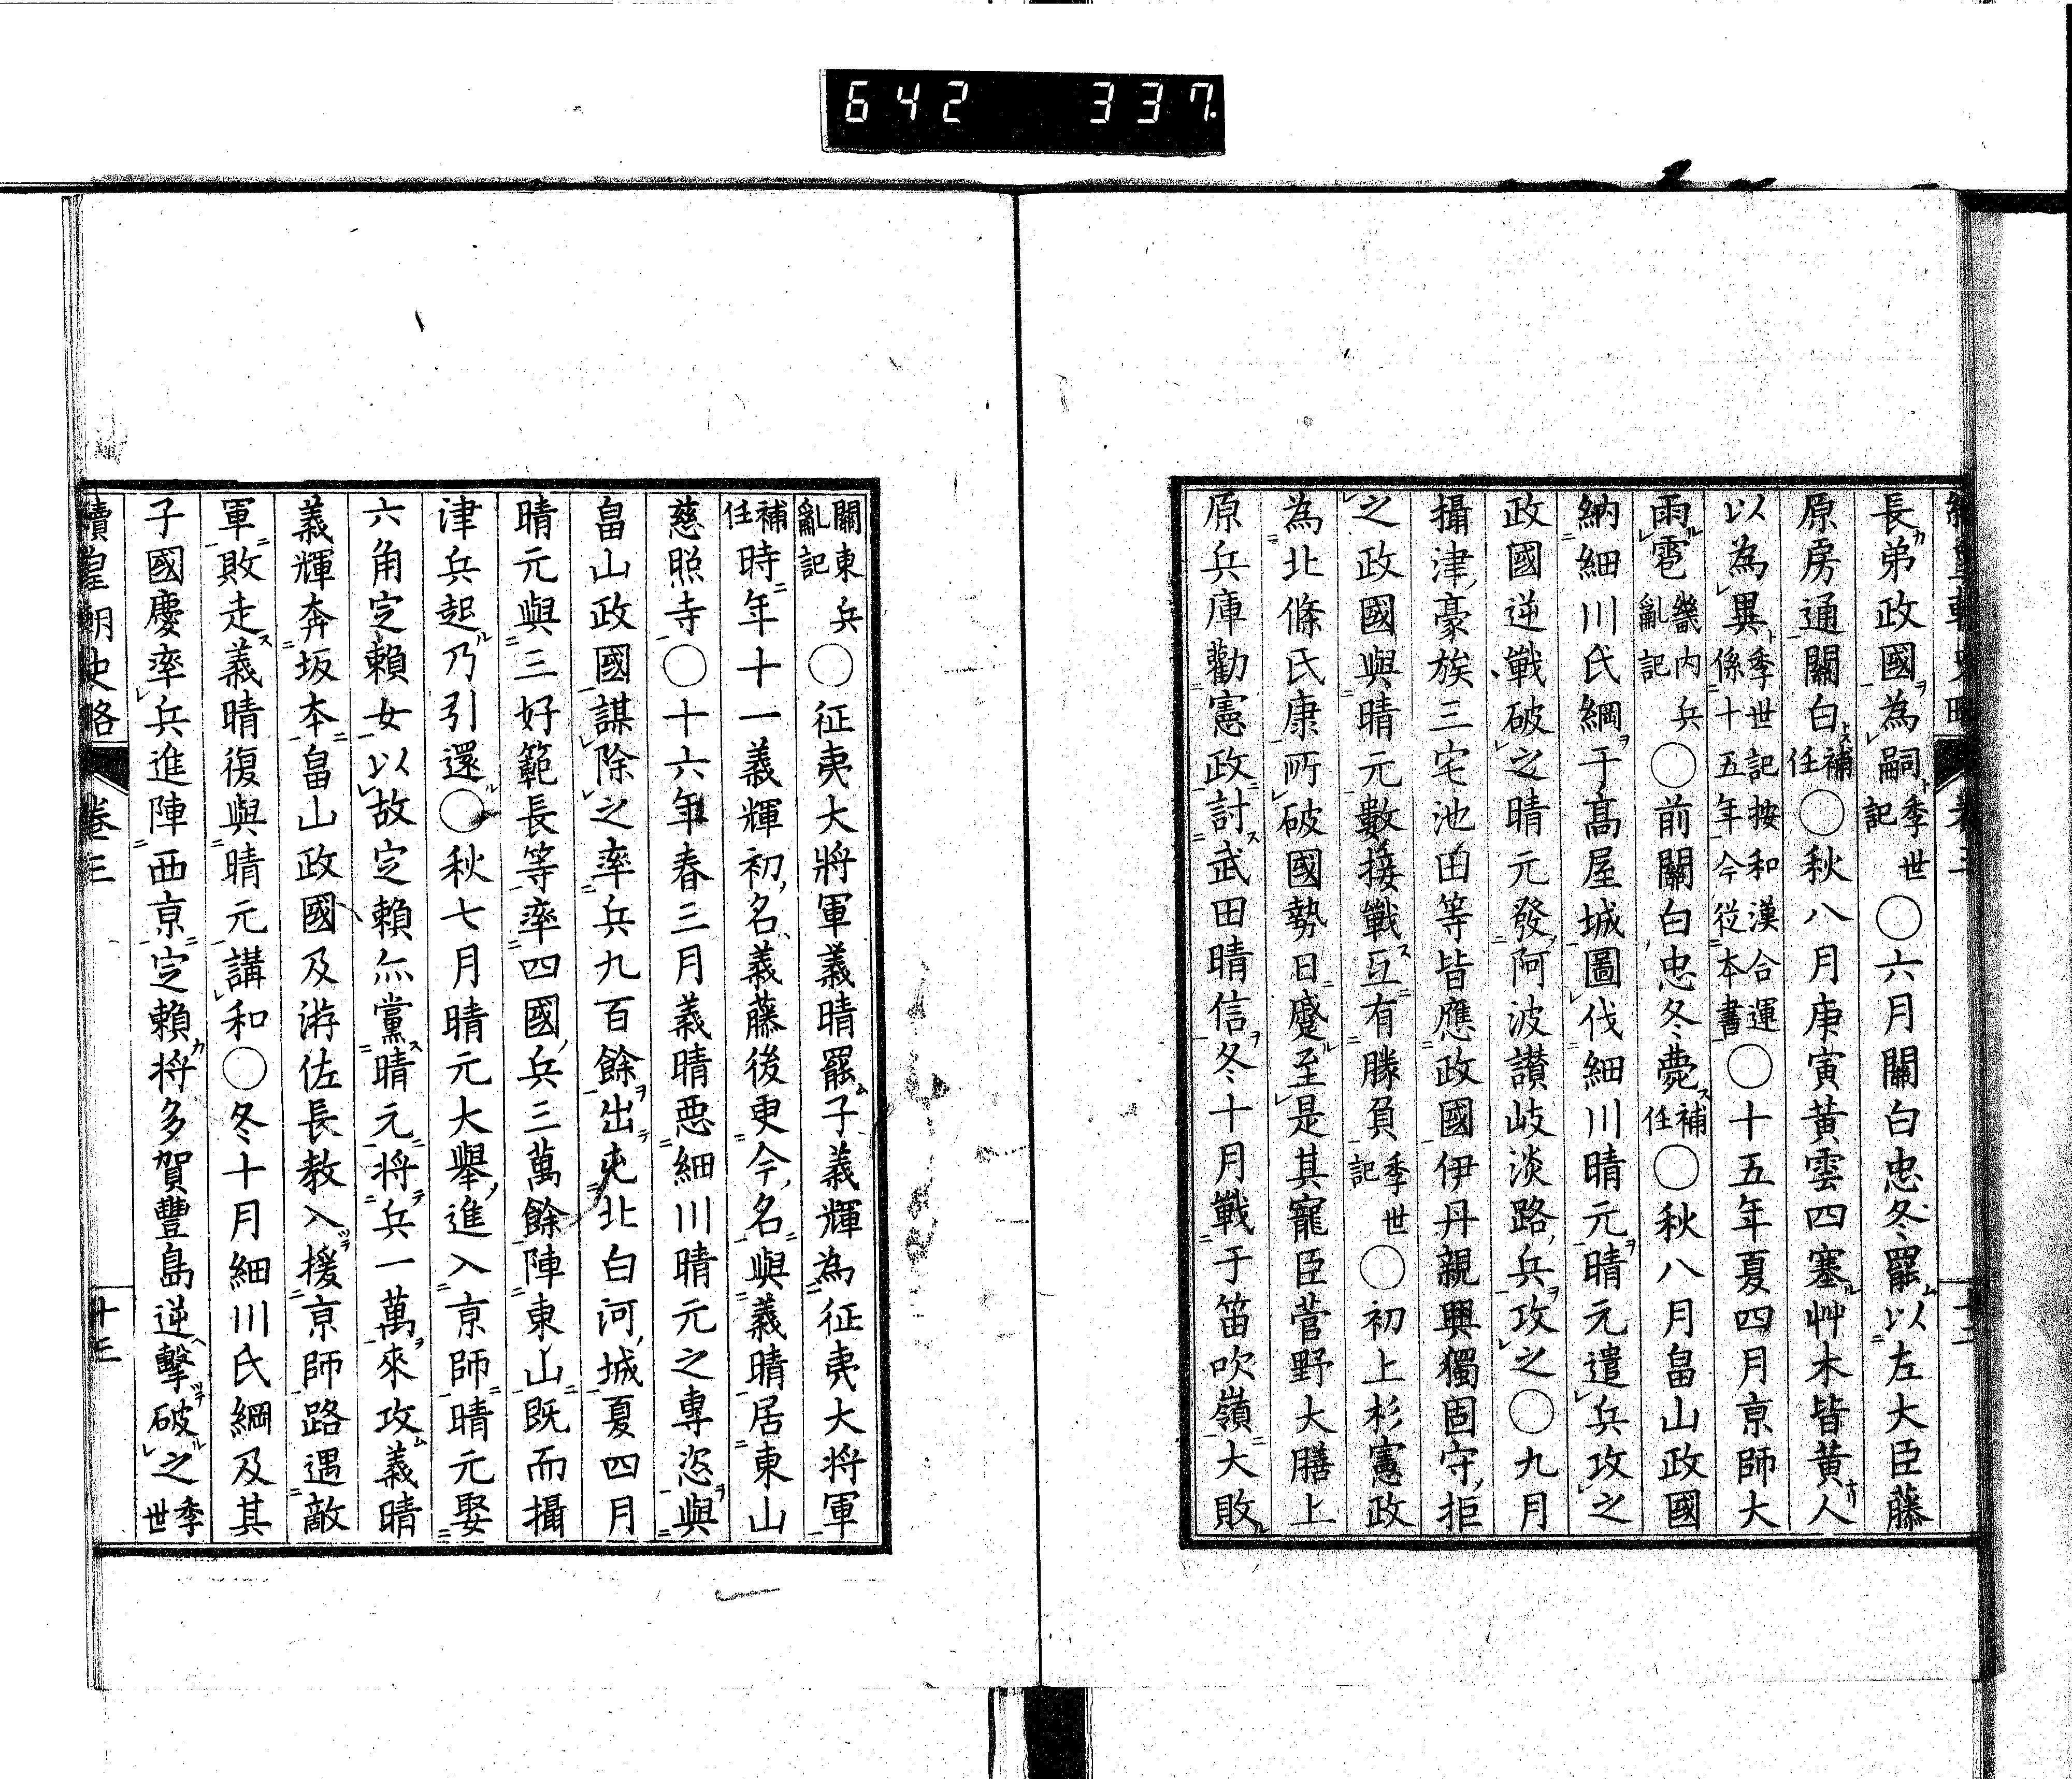 642 337.
長弟政國為嗣季世記〇六月關白忠冬罷以左大臣藤
原房通關白補任〇秋八月庚寅黃雲四塞艸木皆黃人
以為異季世記按和漢合運係十五年今從本書〇十五年夏四月京師大
雨雹畿內兵亂記〇前關白忠冬薨補任〇秋八月畠山政國
納細川氏綱于高屋城圖伐細川晴元晴元遣兵攻之
政國逆戰破之晴元發阿波讃岐淡路兵攻之〇九月
攝津豪族三宅池田等皆應政國伊丹親興獨固守拒
之政國與晴元數接戰互有勝負季世記〇初上杉憲政
為北條氏康所破國勢日蹙至是其寵臣菅野大膳上
原兵庫勸憲政討武田晴信冬十月戰于笛吹嶺大敗
關東兵亂記〇征夷大將軍義晴罷子義輝為征夷大将軍
補任時年十一義輝初名義藤後更今名與義晴居東山
慈照寺〇十六年春三月義晴惡細川晴元之專恣與
畠山政國謀除之率兵九百餘出屯北白河城夏四月
晴元與三好範長等率四國兵三萬餘陣東山既而攝
津兵起乃引還〇秋七月晴元大舉進入京師晴元娶
六角定賴女以故定賴亦黨晴元将兵一萬來攻義晴
義輝奔坂本畠山政國及游佐長教入援京師路遇敵
軍敗走義晴復與晴元講和〇冬十月細川氏綱及其
子國慶率兵進陣西京定賴将多賀豐島逆擊破之季世
續皇朝史略 卷三 十三